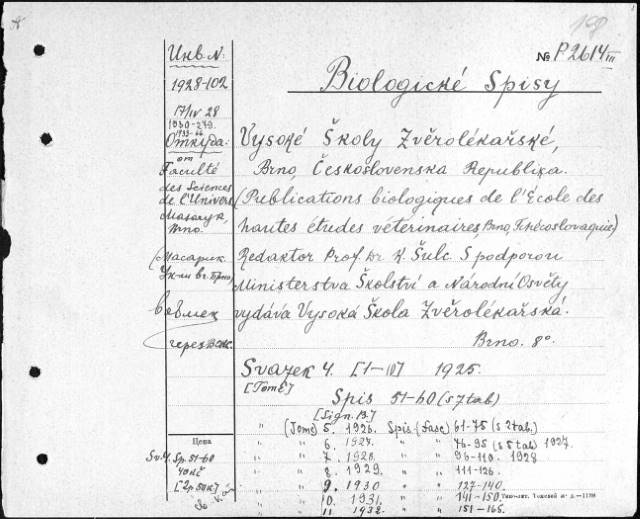 198
№ P.2614 III
Инв. №:
1928-102
17/IV 28
1930-279.
1933-66
Откуда:
от
Faculté
des Sciences
de l'Univers
Masaryk,
Brno.
(Масарик.
Ун-та в г. Брно,
через ВОКС.
Цена
Sv. 4. Sp. 51-60
40 Kč
Biologické Spisy
Vysoké Školy Zvěrolékařské,
Brno, Československa Republika.
(Publications biologiques de l'Ecole des
hautes études véterinaires, Brno, Tchécoslovaquie)
Redaktor Prof. Dr K. Šulc. S podporou
Ministerstva Školství a Národní Osvěty
vydáva Vysoká Škola Zvěrolékařská.
Brno. 8°.
Svazek 4. [1-10] 1925.
[Tome]
Spis 51-60 (s 7 tab)
[Sign. B.]
" (Tome) 5. 1926. Spis (Fasc) 61-75 (s 2 tab.)
" " 6. 1927. " " 76-95 (s 5 tab) 1927.
" " 7. 1928. " " 96-110. 1928
" " 8. 1929. " " 111-126.
" " 9. 1930 " " 127-140.
" " 10. 1931. " " 141-150.
" " 11. 1932. " " 151-165.